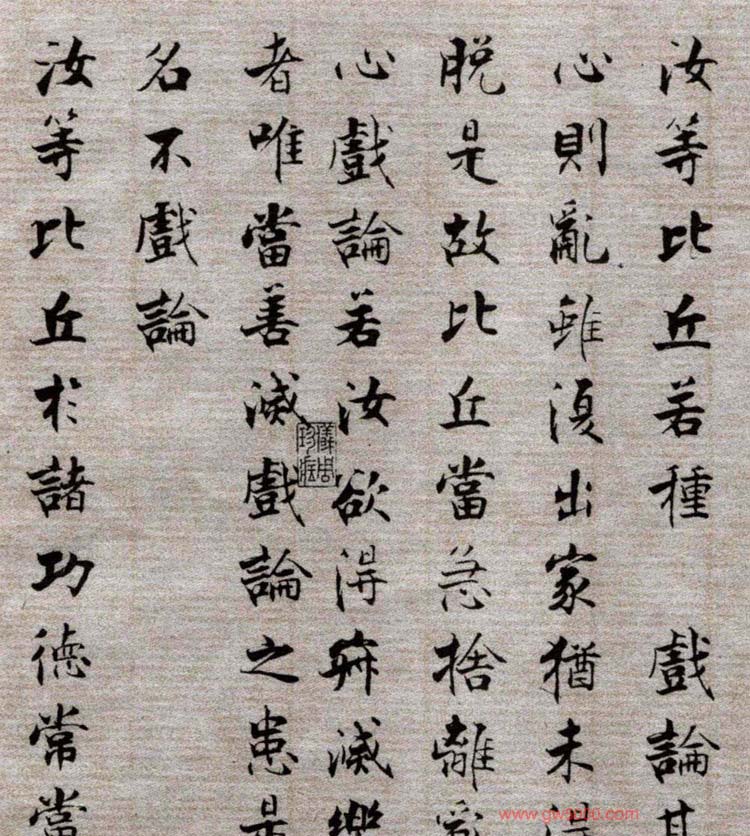 汝等比丘若種 戲論其
心則亂雖復出家猶未得
脫是故比丘當急捨離亂
心戲論若汝欲得寂滅樂
者唯當善滅戲論之患是
名不戲論
汝等比丘於諸功德常當
儀周珍藏